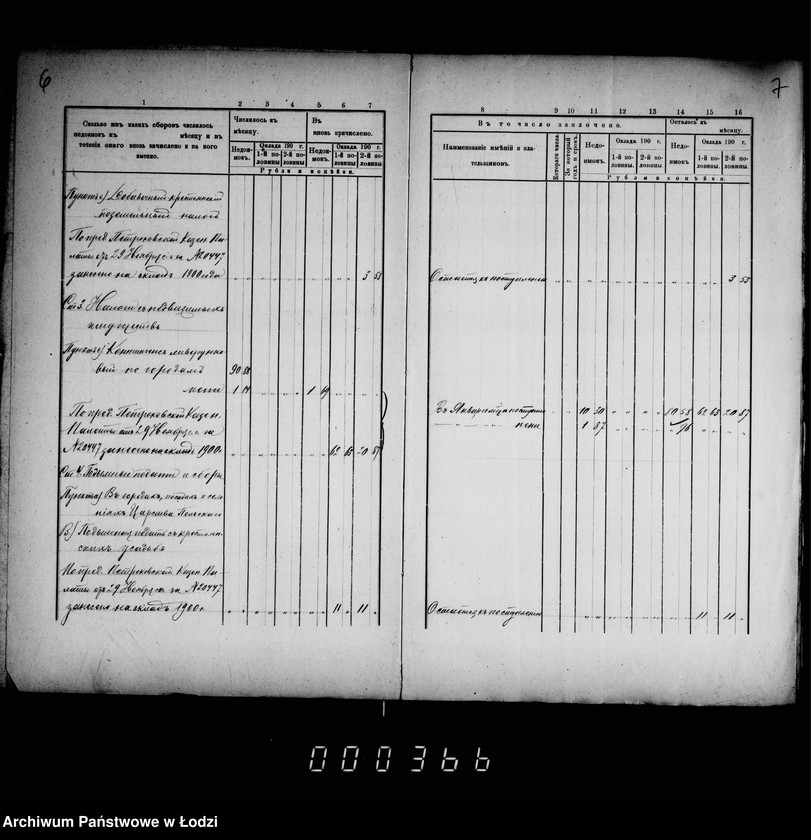 6
7
1
2 3 4 5 6 7
Сколько имъ какихъ сборовъ числилось
недоимокъ къ мѣсяцу и въ
теченіи онаго вновь зачислено и на кого
именно.
Числилось къ
мѣсяцу.
Въ
вновь причислено.
Недои-
мокъ.
Оклада 190 г.
1-й по-
ловины
2-й по-
ловины
Недои-
мокъ.
Оклада 190 г.
1-й по-
ловины
2-й по-
ловины
Рубли и копѣйки.
Добавочный крестьянскій
поземельный налогъ
По пред. Петроковской Казен. Па-
латы отъ 29 Ноября с.г. за №20447
занесено на складъ 1900 года
3 53
Ст. 3. Налогъ съ недвижимыхъ
имуществъ
по городамъ
90 88
пени
1 14
1 49
По пред. Петроковской Казен.
Палаты отъ 29 Ноября с.г. за
№20447 занесено на складъ 1900 г.
62 65 20 87
Ст. 4. Подымныя подати и сборы
Въ городахъ, посадахъ и селе-
ніяхъ Царства Польскаго
Подымная подать съ крестьян-
скихъ усадьбъ
По пред. Петроковской Казен. Па-
латы отъ 29 Ноября с.г. за №20447
занесено на складъ 1900 г.
11 11
8
9 10 11 12 13 14 15 16
Въ то число заплочено.
Осталось къ
мѣсяцу.
Наименованіе имѣній и пла-
тельщиковъ.
Котораго числа.
За который
годъ и срокъ.
Недо-
имокъ.
Оклада 190 г.
1-й по-
ловины.
2-й по-
ловины
Недо-
имокъ.
Оклада 190 г.
1-й по-
ловины
2-й по-
ловины
Рубли и копѣйки.
Остается къ поступленію
3 53
Въ Январѣ м-цѣ поступило
10 30
80 58 62 65 20 87
пени
1 87
76
Остается къ поступленію
11 11
000366
Archiwum Państwowe w Łodzi